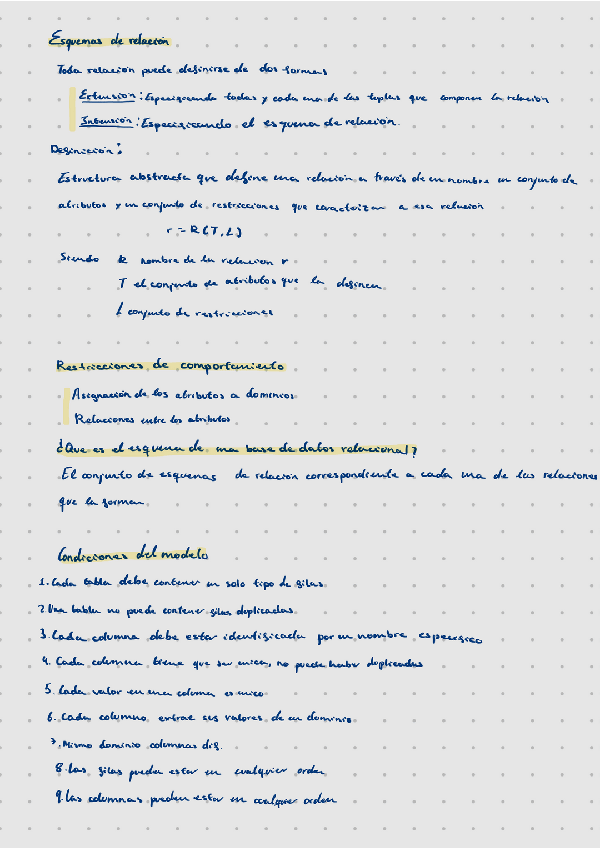 Esquemas de relación
Toda relación puede definirse de dos formas
Extensión: Especificando todas y cada una de las tuplas que componen la relación
Intensión: Especificando el esquema de relación.
Definición:
Estructura abstracta que define una relación a través de un nombre un conjunto de
atributos y un conjunto de restricciones que caracterizan a esa relación
r = R(T, L)
Siendo R nombre de la relacion r
T el conjunto de atributos que la definen
L conjunto de restricciones
Restricciones de comportamiento
Asignación de los atributos a dominios
Relaciones entre los atributos
¿Que es el esquema de una base de datos relacional?
El conjunto de esquemas de relación correspondiente a cada una de las relaciones
que la forman
Condiciones del modelo
1. Cada tabla debe contener un solo tipo de filas
2. Una tabla no puede contener filas duplicadas
3. Cada columna debe estar identificada por un nombre especifico
4. Cada columna tiene que ser unica, no puede haber duplicadas
5. Cada valor en una columna es unico
6. Cada columna extrae sus valores de un dominio
7. Mismo dominio columnas dif.
8. Las filas pueden estar en cualquier orden
9. Las columnas pueden estar en cualquier orden